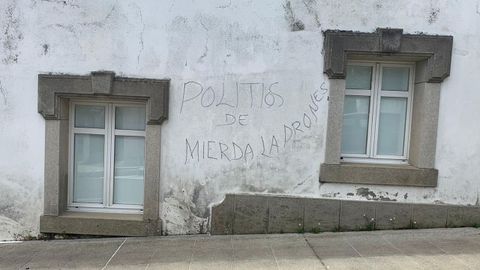 POLITIOS
DE
MIERDA LADRONES